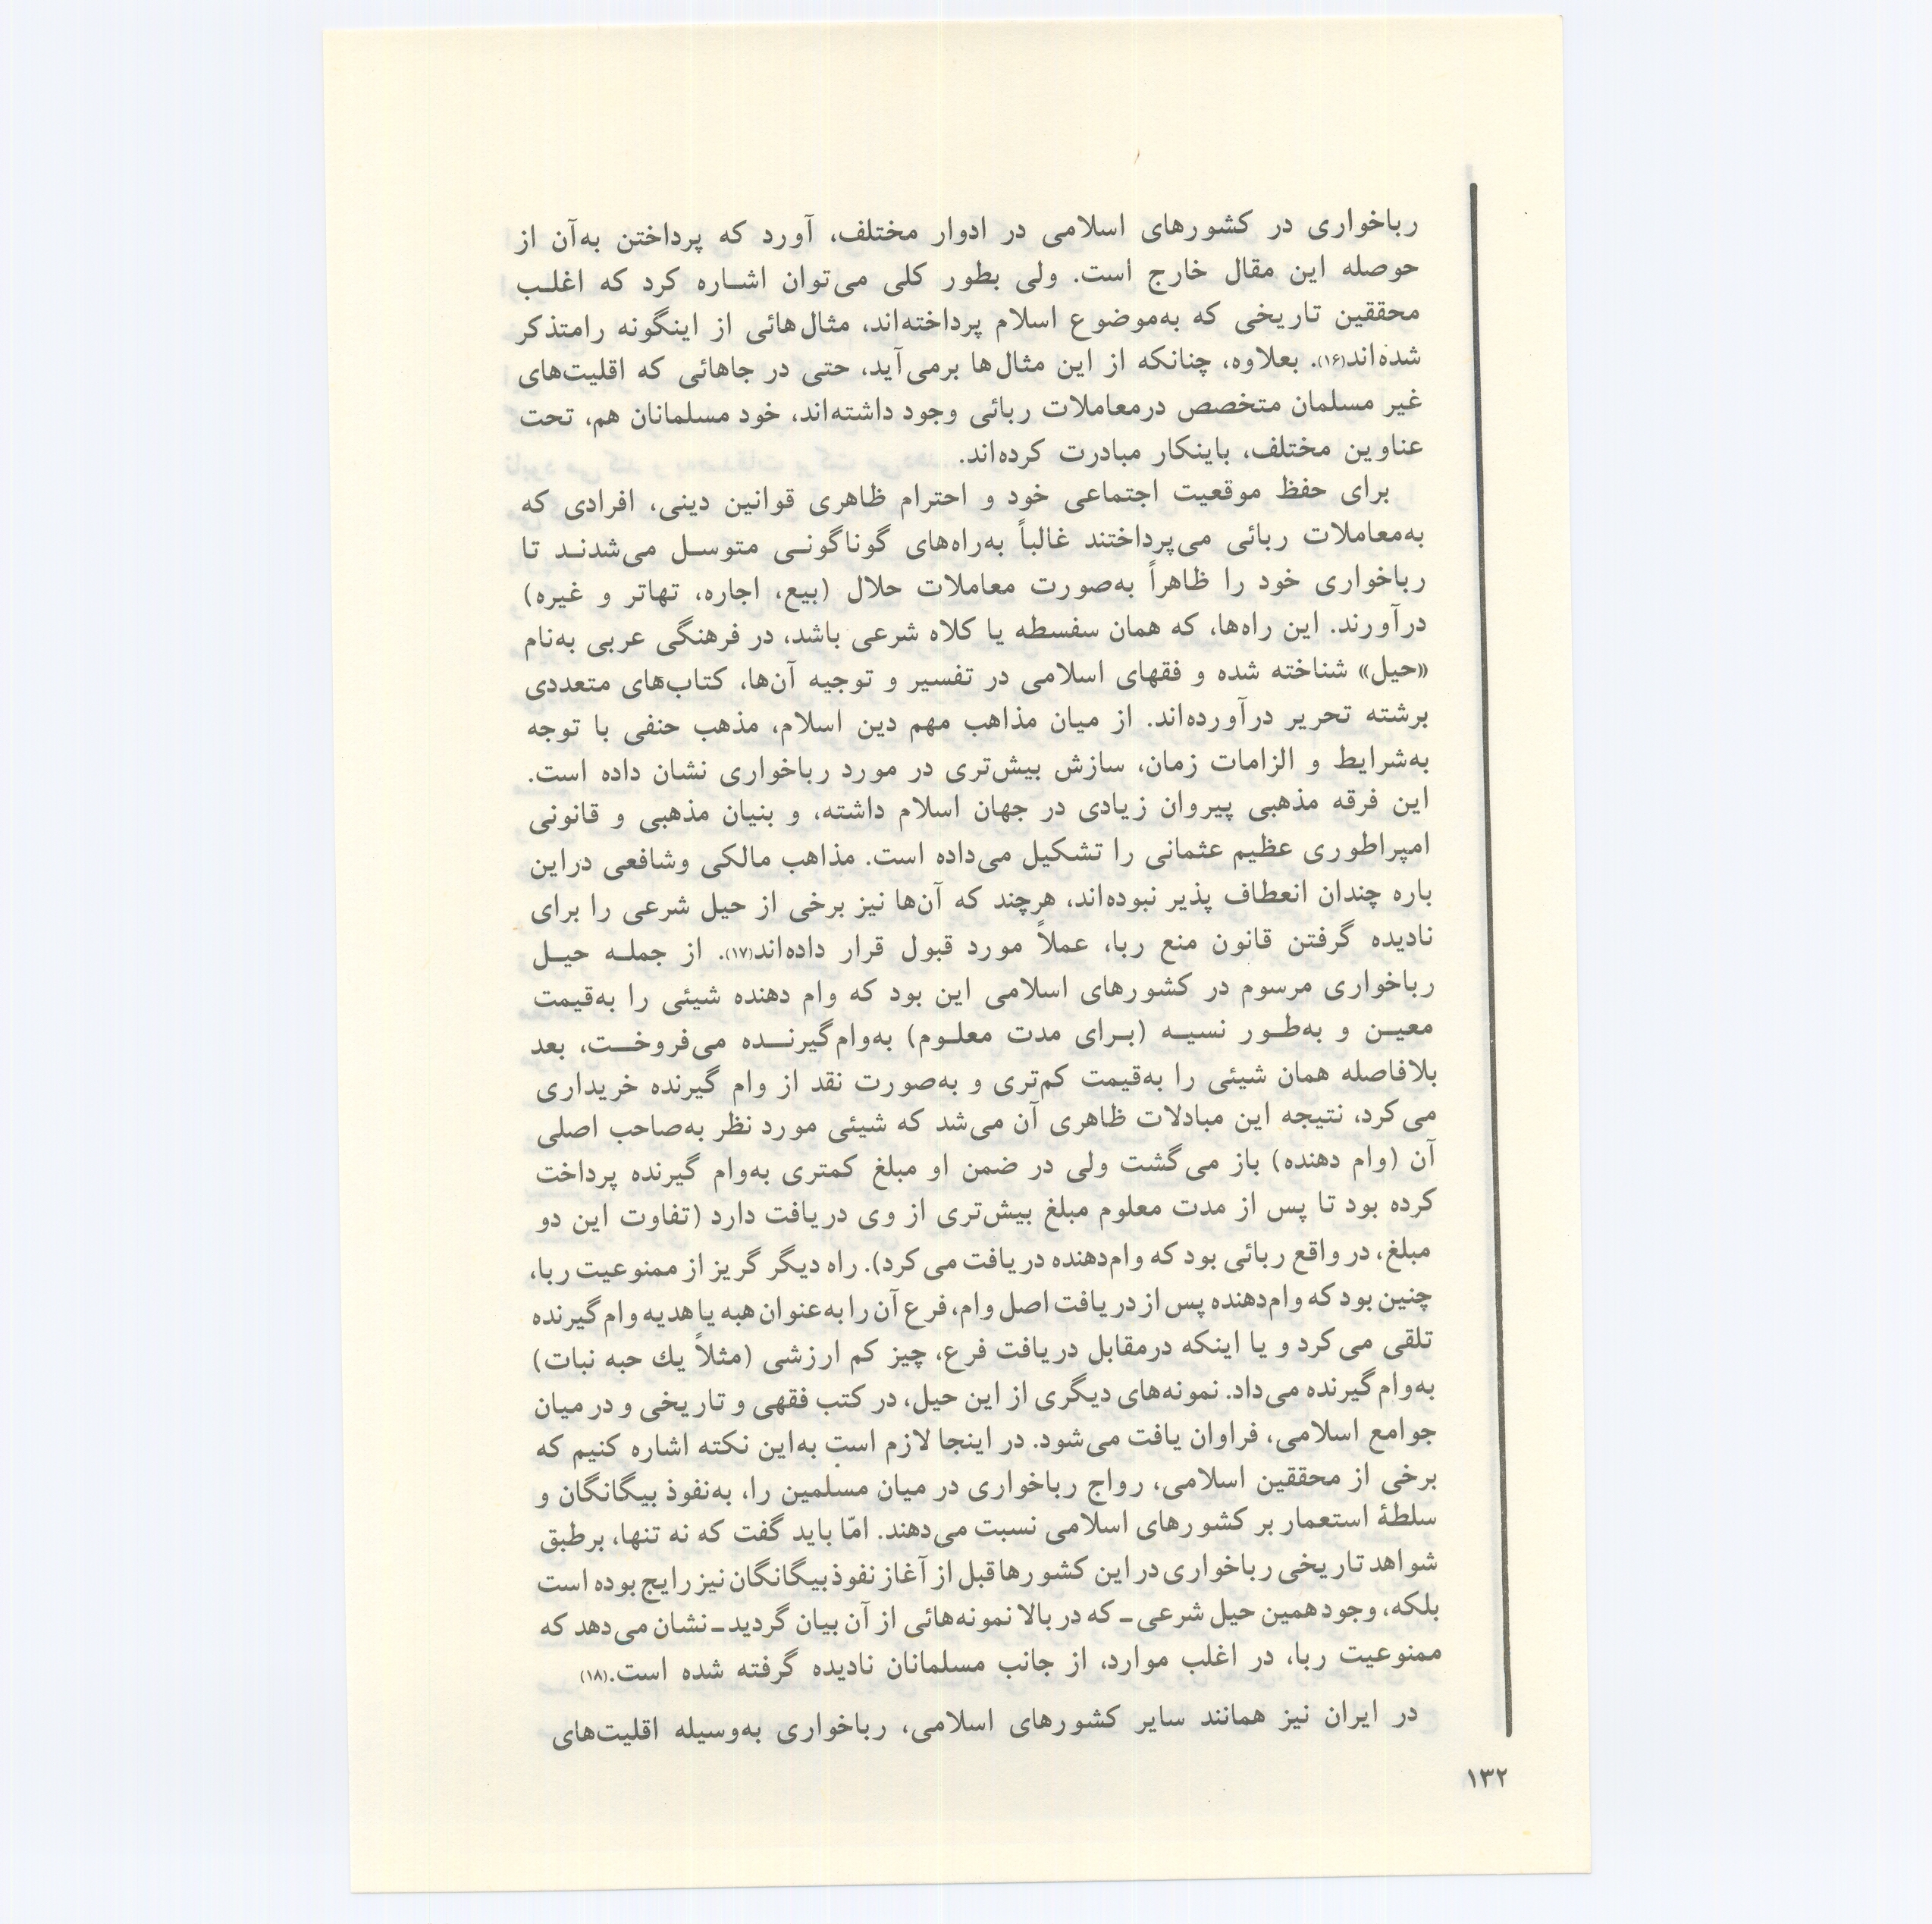 رباخواری در کشورهای اسلامی در ادوار مختلف، آورد که پرداختن به‌آن از
حوصله این مقال خارج است. ولی بطور کلی می‌توان اشــاره کرد که اغلــب
محققین تاریخی که به‌موضوع اسلام پرداخته‌اند، مثال‌هائی از اینگونه رامتذکر
شده‌اند(۱۶). بعلاوه، چنانکه از این مثال‌ها برمی‌آید، حتی در جاهائی که اقلیت‌های
غیر مسلمان متخصص درمعاملات ربائی وجود داشته‌اند، خود مسلمانان هم، تحت
عناوین مختلف، باینکار مبادرت کرده‌اند.
برای حفظ موقعیت اجتماعی خود و احترام ظاهری قوانین دینی، افرادی که
به‌معاملات ربائی می‌پرداختند غالباً به‌راه‌های گوناگونــی متوســل می‌شدنــد تا
رباخواری خود را ظاهراً به‌صورت معاملات حلال (بیع، اجاره، تهاتر و غیره)
درآورند. این راه‌ها، که همان سفسطه یا کلاه شرعی باشد، در فرهنگی عربی به‌نام
«حیل» شناخته شده و فقهای اسلامی در تفسیر و توجیه آن‌ها، کتاب‌های متعددی
برشته تحریر درآورده‌اند. از میان مذاهب مهم دین اسلام، مذهب حنفی با توجه
به‌شرایط و الزامات زمان، سازش بیش‌تری در مورد رباخواری نشان داده است.
این فرقه مذهبی پیروان زیادی در جهان اسلام داشته، و بنیان مذهبی و قانونی
امپراطوری عظیم عثمانی را تشکیل می‌داده است. مذاهب مالکی وشافعی دراین
باره چندان انعطاف پذیر نبوده‌اند، هرچند که آن‌ها نیز برخی از حیل شرعی را برای
نادیده گرفتن قانون منع ربا، عملاً مورد قبول قرار داده‌اند(۱۷). از جملــه حیــل
رباخواری مرسوم در کشورهای اسلامی این بود که وام دهنده شیئی را به‌قیمت
معیــن و به‌طــور نسیــه (بــرای مدت معلــوم) به‌وام‌گیرنــده می‌فروخــت، بعد
بلافاصله همان شیئی را به‌قیمت کم‌تری و به‌صورت نقد از وام گیرنده خریداری
می‌کرد، نتیجه این مبادلات ظاهری آن می‌شد که شیئی مورد نظر به‌صاحب اصلی
آن (وام دهنده) باز می‌گشت ولی در ضمن او مبلغ کمتری به‌وام گیرنده پرداخت
کرده بود تا پس از مدت معلوم مبلغ بیش‌تری از وی دریافت دارد (تفاوت این دو
مبلغ، در واقع ربائی بود که وام‌دهنده دریافت می‌کرد). راه دیگر گریز از ممنوعیت ربا،
چنین بود که وام‌دهنده پس از دریافت اصل وام، فرع آن را به‌عنوان هبه یا هدیه وام‌گیرنده
تلقی می‌کرد و یا اینکه درمقابل دریافت فرع، چیز کم ارزشی (مثلاً یك حبه نبات)
به‌وام‌گیرنده می‌داد. نمونه‌های دیگری از این حیل، در کتب فقهی و تاریخی و در میان
جوامع اسلامی، فراوان یافت می‌شود. در اینجا لازم است به‌این نکته اشاره کنیم که
برخی از محققین اسلامی، رواج رباخواری در میان مسلمین را، به‌نفوذ بیگانگان و
سلطهٔ استعمار بر کشورهای اسلامی نسبت می‌دهند. امّا باید گفت که نه تنها، برطبق
شواهد تاریخی رباخواری در این کشورها قبل از آغاز نفوذ بیگانگان نیز رایج بوده است
بلکه، وجود همین حیل شرعی ــ که در بالا نمونه‌هائی از آن بیان گردید ــ نشان می‌دهد که
ممنوعیت ربا، در اغلب موارد، از جانب مسلمانان نادیده گرفته شده است.(۱۸)
در ایران نیز همانند سایر کشورهای اسلامی، رباخواری به‌وسیله اقلیت‌های
۱۳۲